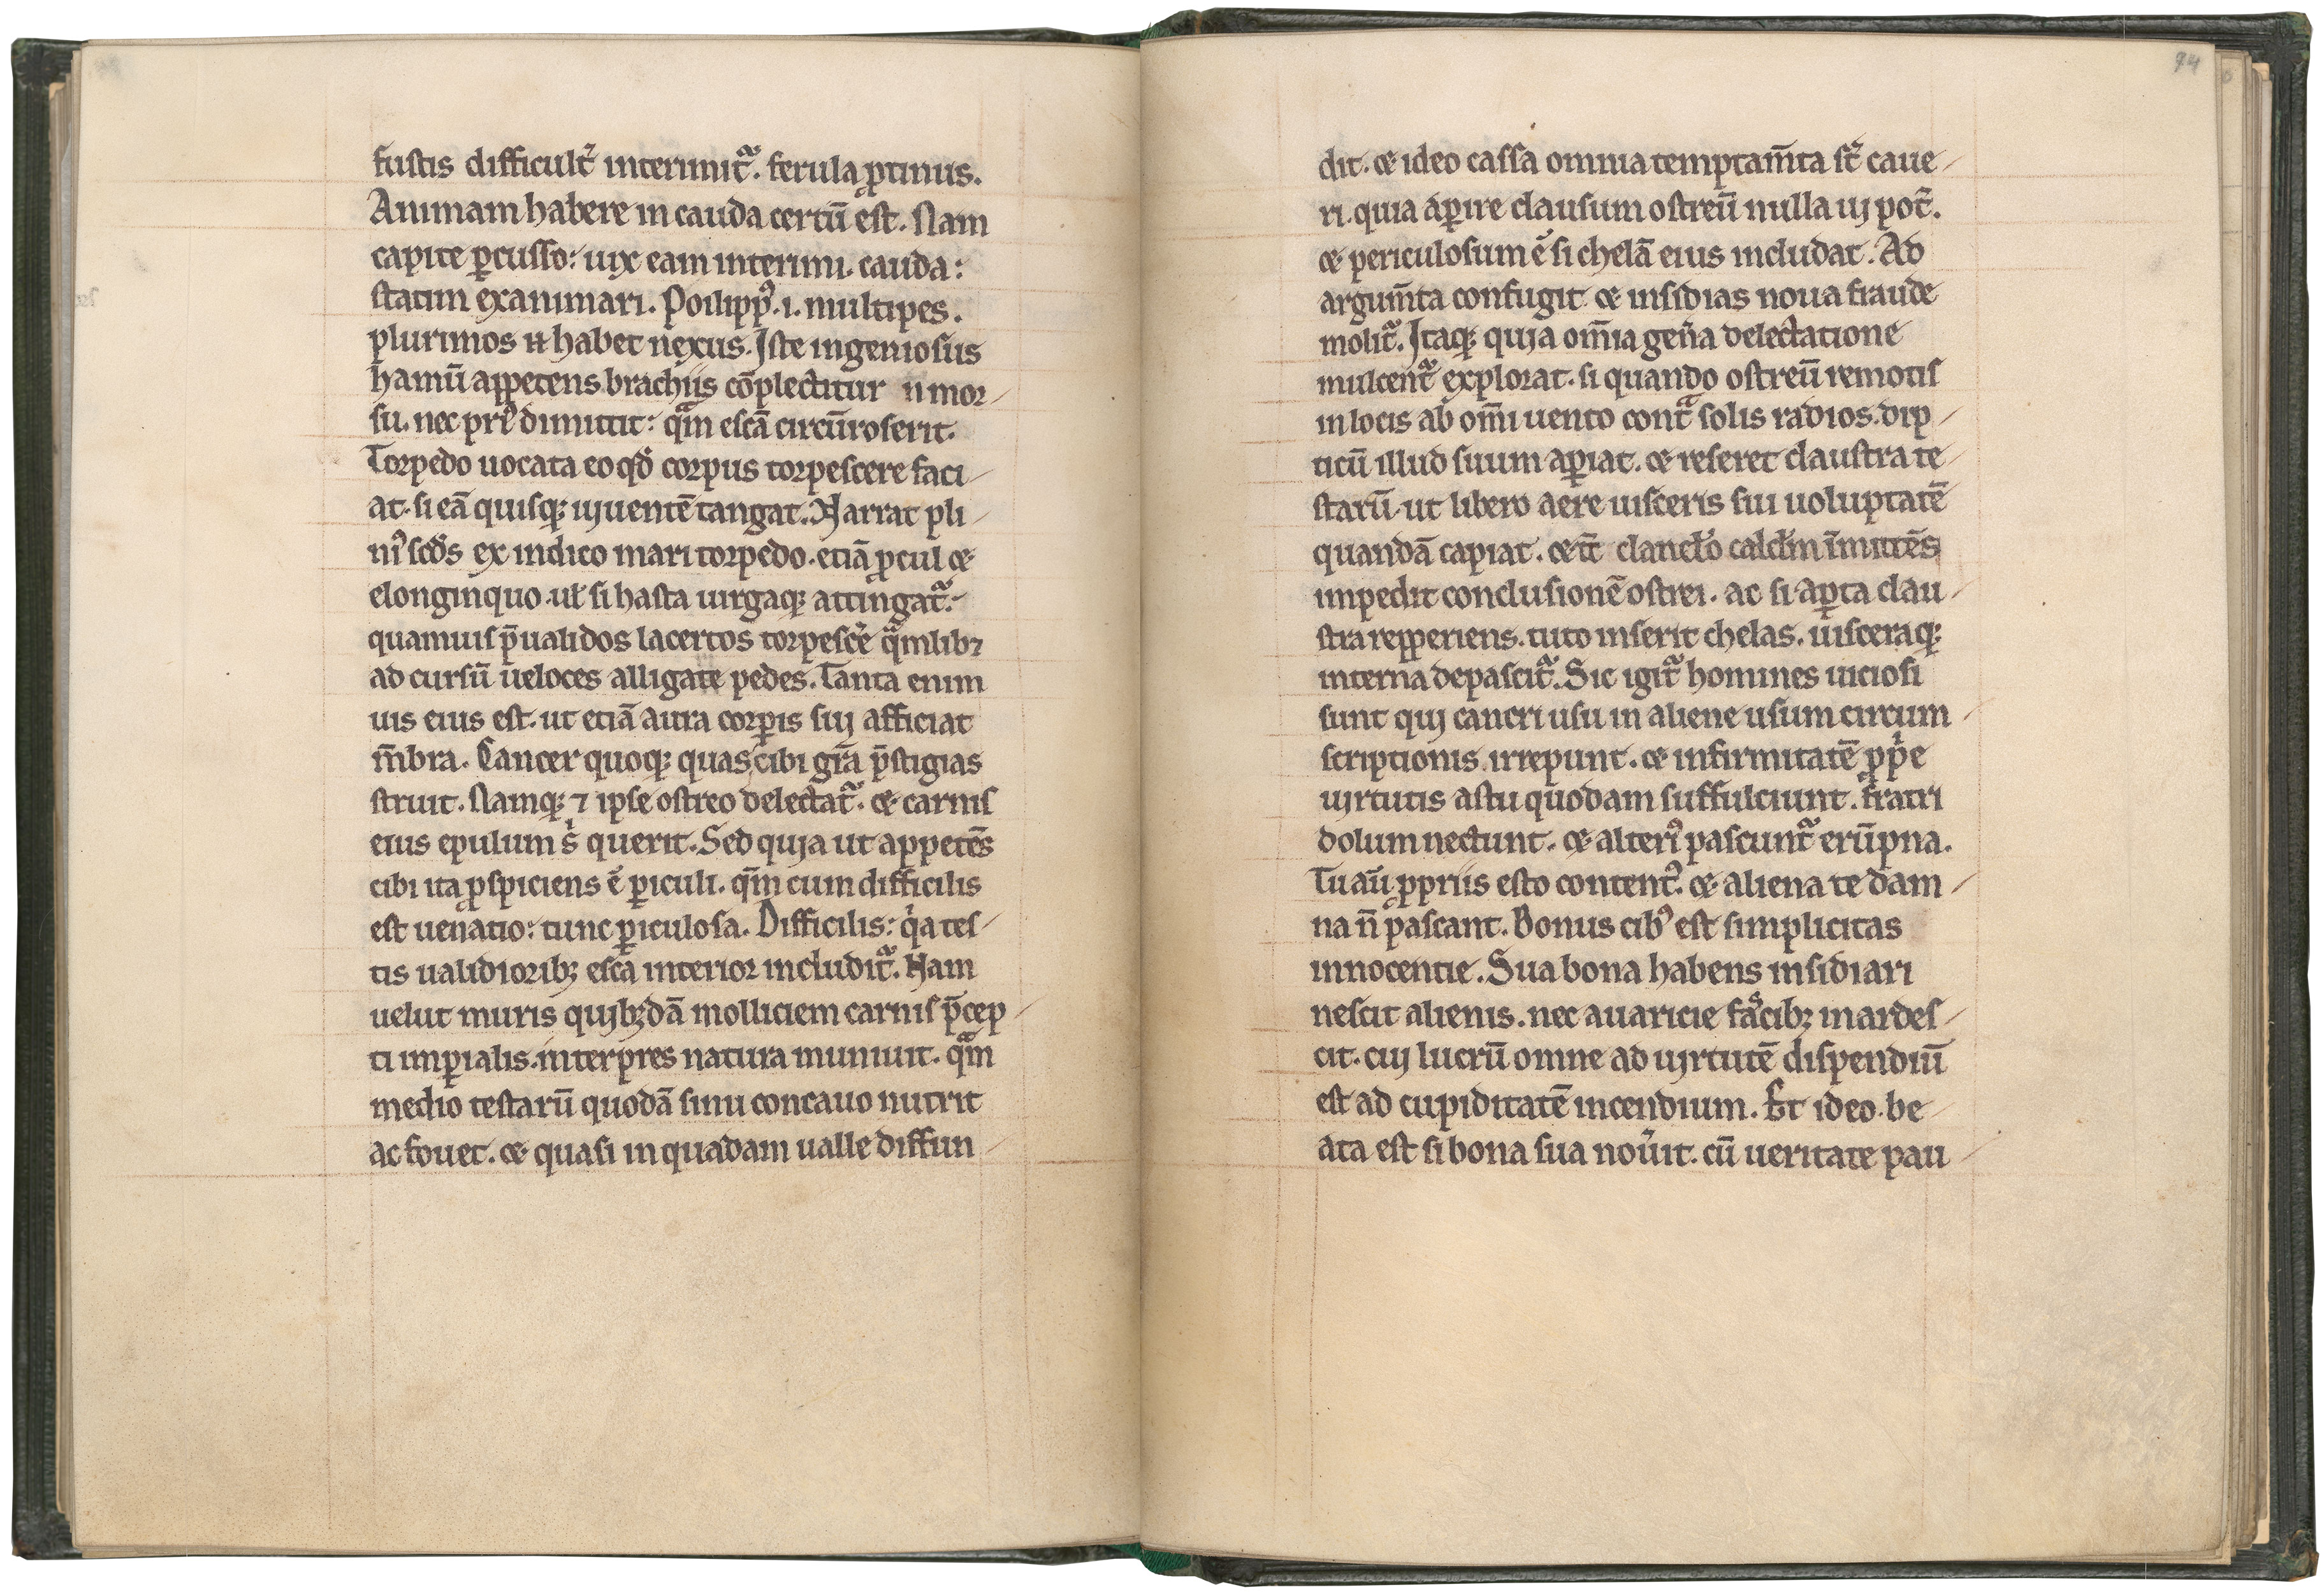 fustis difficult᷑ interimit᷑. ferula ꝓtinus.
Animam habere in cauda certū est. Nam
capite ꝑcusso: uix eam interimi. cauda:
statim exanimari. Poilipp᷒. i. multipes.
plurimos n̄ habet nexus. Iste ingeniosus
hamū appetens brachiis cōplectitur n mor
su. nec priꝰ dimittit: qᵃm escā circūroserit.
Torpedo uocata eo qđ corpus torpescere faci
at. si eā quisqꝫ uiuentē tangat. Narrat pli
niꝰ scđs ex indico mari torpedo. etiā ꝓcul ⁊
elonginquo. ul̄ si hasta uirgaqꝫ attingat᷑.
quamuis p̄ualidos lacertos torpesce᷑ qᵃmlibꝫ
ad cursū ueloces alligate pedes. Tanta enim
uis eius est. ut etiā aura corꝑis sui afficiat
m̄bra. Cancer quoqꝫ quas cibi gr̄a p̄stigias
struit. Namqꝫ ⁊ ipse ostreo delectat᷑. ⁊ carnis
eius epulum sⁱ querit. Sed quia ut appetēs
cibi ita ꝓspiciens ē ꝑiculi. qm̄ cum difficilis
est uenatio: tunc ꝑiculosa. Difficilis: qⁱa tes
tis ualidioribꝫ esca interior includit᷑. Nam
uelut muris quibꝫdā molliciem carnis p̄cep
ti imꝑialis. interpres natura muniuit. qᵃm
medio testarū quodā sinu concauo nutrit
ac fouet. ⁊ quasi in quadam ualle diffun
94
dit. ⁊ ideo cassa omnia temptam̄ta st᷑ caue
ri. quia aꝑire clausum ostreū nulla ui pot᷑.
⁊ periculosum ē si chelā eius includat. Ad
argum̄ta confugit ⁊ insidias noua fraude
molit᷑. Itaqꝫ quia om̄ia gen̄a delectatione
mulcent᷑ explorat. si quando ostreū remotis
in locis ab om̄i uento contᵃ solis radios. dip
ticū illud suum aꝑiat. ⁊ reseret claustra te
starū. ut libero aere uisceris sui uoluptatē
quandā capiat. ⁊ tc̄ clanclo calclm īmittēs
impedit conclusionē ostrei. ac si aꝑta clau
stra repperiens. tuto inserit chelas. uisceraqꝫ
interna depascit᷑. Sic igit᷑ homines uiciosi
sunt qui cancri usu in aliene usum circum
scriptionis irrepunt. ⁊ infirmitatē ꝓpⁱe
uirtutis astu quodam suffulciunt. fratri
dolum nectunt. ⁊ alteriꝰ pascunt᷑ erūpna.
Tu aū ꝓpriis esto contentꝰ. ⁊ aliena te dam
na n̄ pascant. Bonus cibꝰ est simplicitas
innocentie. Sua bona habens insidiari
nescit alienis. nec auaricie facibꝫ inardes
cit. cui lucrū omne ad uirtutē dispendiū
est ad cupiditatē incendium. Et ideo. be
ata est si bona sua nou᷑it. cū ueritate pau